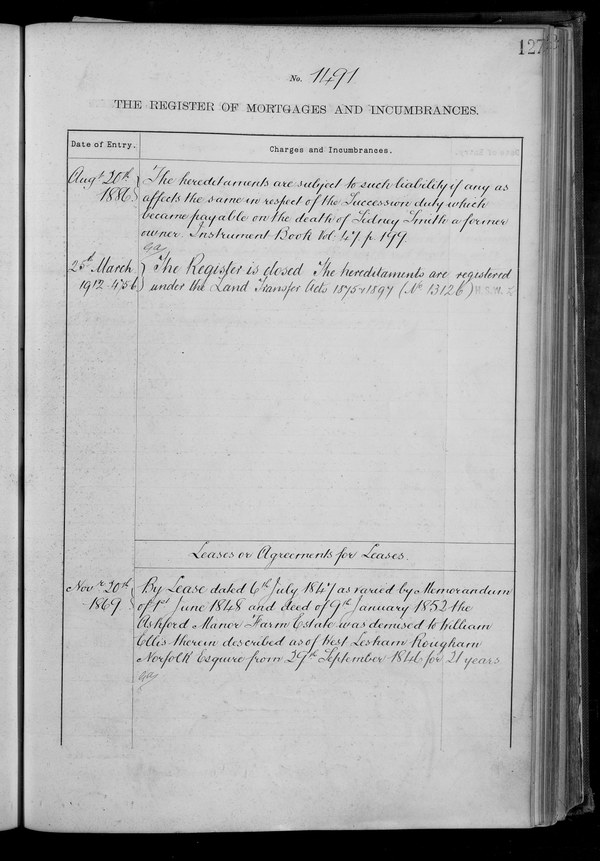 127
No. 1491
THE REGISTER OF MORTGAGES AND INCUMBRANCES.
Date of Entry.
Charges and Incumbrances.
Augt 20th
1886
The hereditaments are subject to such liability if any as
affects the same in respect of the Succession duty which
became payable on the death of Sidney Smith a former
owner. Instrument Book Vol 47 p 199
25th March
1912
The Register is closed The hereditaments are registered
under the Land Transfer Acts 1875 & 1897 (No 13126)
Leases or Agreements for Leases.
Novr 20th
1869
By Lease dated 6th July 1847 as varied by Memorandum
of 1st June 1848 and deed of 9th January 1852 the
Ashford Manor Farm Estate was demised to William
Ellis therein described as of West Lesham Rougham
Norfolk Esquire from 29th September 1846 for 21 years